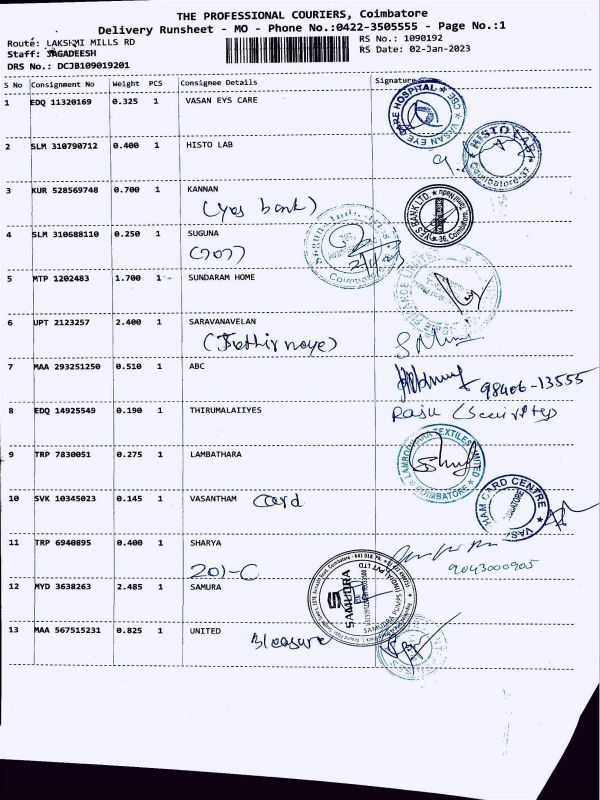 THE PROFESSIONAL COURIERS, Coimbatore
Delivery Runsheet - MO - Phone No.:0422-3505555 - Page No.:1
Route: LAKSHMI MILLS RD
RS No.: 1090192
Staff: JAGADEESH
RS Date: 02-Jan-2023
DRS No.: DCJB109019201
S No Consignment No Weight PCS Consignee Details Signature
1 EDQ 11320169 0.325 1 VASAN EYS CARE
VASAN EYE CARE HOSPITAL
2 SLM 310790712 0.400 1 HISTO LAB
HISTO LAB Coimbatore-37
3 KUR 528569748 0.700 1 KANNAN
(yes bank)
YES BANK LTD. Tamil Nadu
4 SLM 310688110 0.250 1 SUGUNA
5 MTP 1202483 1.700 1 - SUNDARAM HOME
6 UPT 2123257 2.400 1 SARAVANAVELAN
7 MAA 293251250 0.510 1 ABC
98406-13555
8 EDQ 14925549 0.190 1 THIRUMALAIIYES
9 TRP 7830051 0.275 1 LAMBATHARA
TEXTILES LIMITED COIMBATORE
10 SVK 10345023 0.145 1 VASANTHAM card
CARD CENTRE
11 TRP 6940895 0.400 1 SHARYA
201-C
9043000905
12 MYD 3638263 2.485 1 SAMURA
SAMUDRA
13 MAA 567515231 0.825 1 UNITED